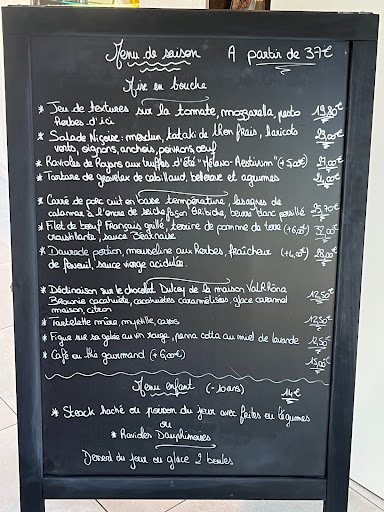 Menu de saison A partir de 37€
Mise en bouche
* Jeu de textures sur la tomate, mozzarella, pesto 19,80€
herbes d'ici
* Salade Niçoise: mesclun, tataki de thon frais, haricots 23,00€
verts, oignons, anchois, poivrons, oeuf
* Ravioles de Royans aux truffes d'été "Mélano-Aestivum" (+5,00€) 27,00€
* Tartare de gravelax de cabillaud, betterave et agrumes 21,00€
* Carré de porc cuit en basse température, lasagnes de
calamar à l'encre de seiche façon Gribiche, beurre blanc persillé 25,70€
* Filet de boeuf Français grillé, terrine de pomme de terre (+6,00€) 32,00€
croustillante, sauce Béarnaise
* Daurade portion, mousseline aux herbes, fraîcheur (+4,00€) 28,00€
de fenouil, sauce vierge acidulée.
* Déclinaison sur le chocolat Dulcey de la maison ValRhôna
Brownie cacahuète, cacahuètes caramélisées, glace caramel 12,50€
maison, citron
* Tartelette mûre, myrtille, cassis 12,50€
* Figue sur sa gelée au vin rouge, panna cotta au miel de lavande 12,50€
* Café ou thé gourmand (+6,00€) 15,00€
Menu enfant (-10ans) 14€
* Steack haché ou poisson du jour avec frites ou légumes
ou
* Ravioles Dauphinoises
Dessert du jour ou glace 2 boules